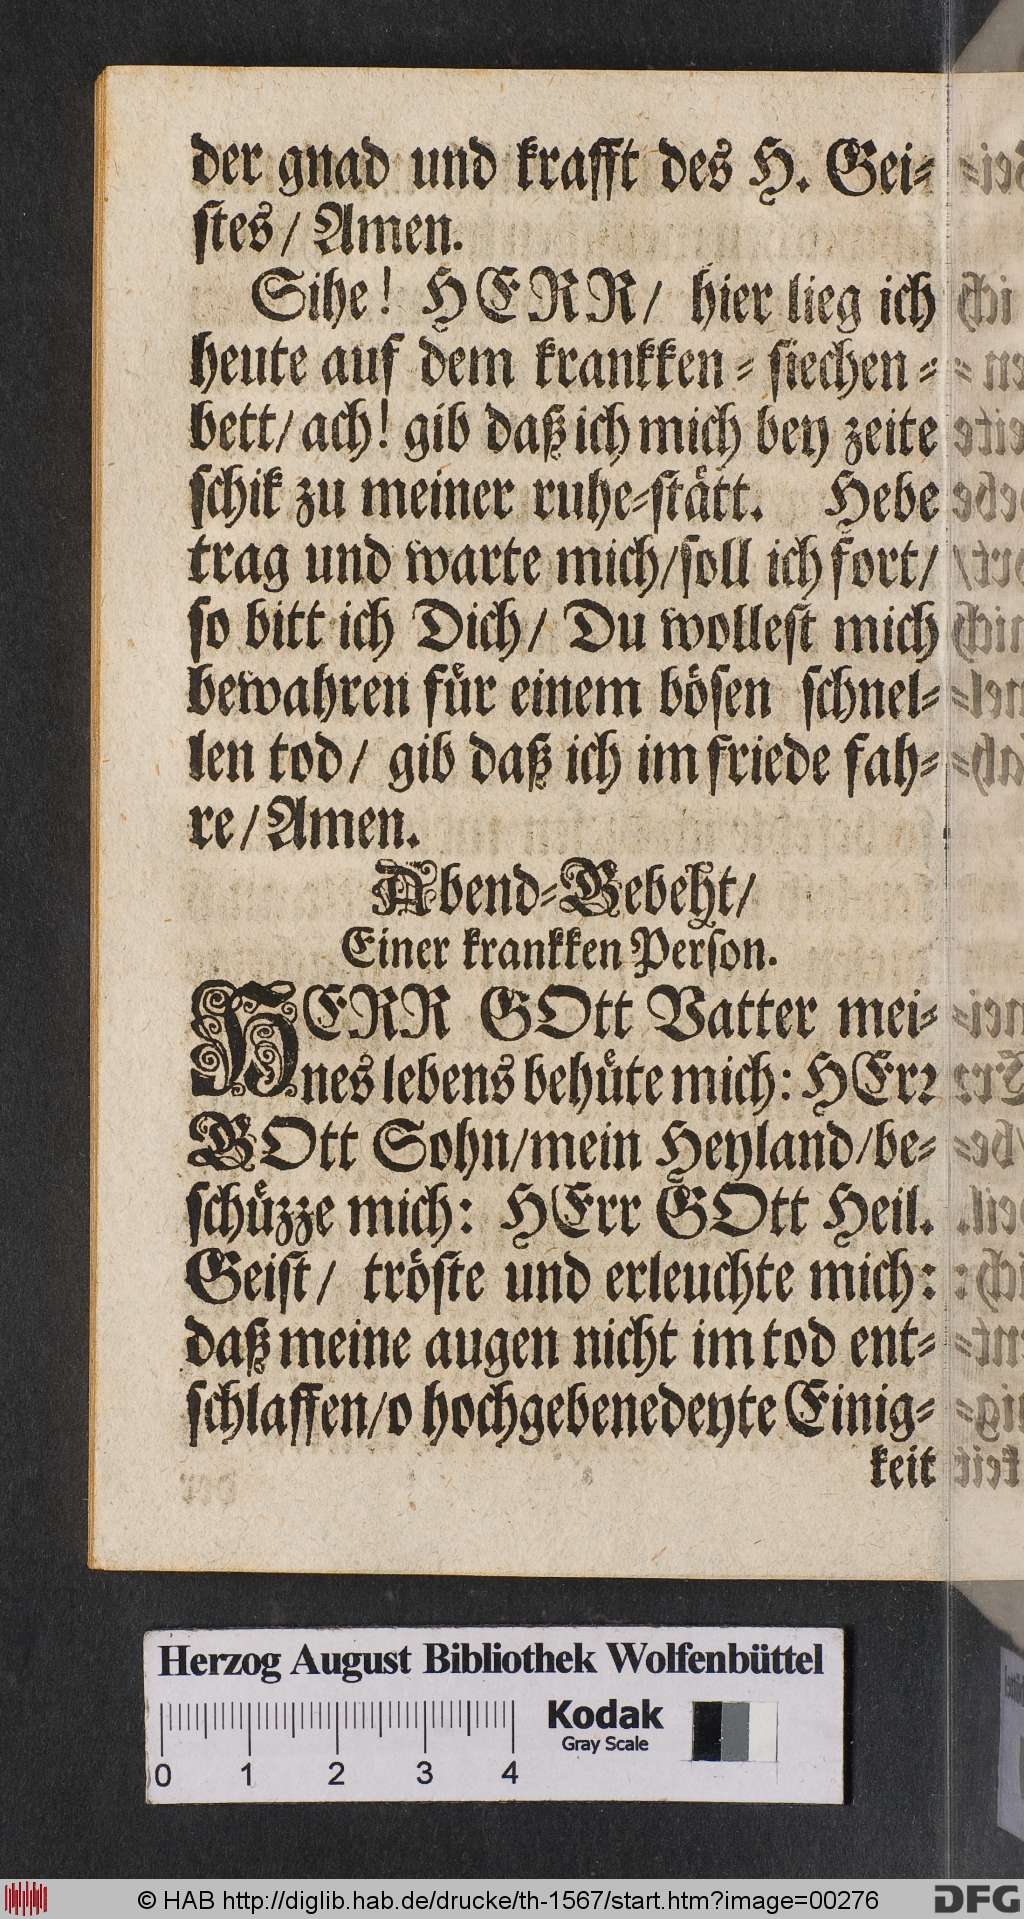 der gnad und krafft des H. Gei-
stes / Amen.
Sihe! HERR / hier lieg ich
heute auf dem krankken-siechen-
bett / ach! gib daß ich mich bey zeite
schik zu meiner ruhe-stått. Hebe
trag und warte mich / soll ich fort /
so bitt ich Dich / Du wollest mich
bewahren fůr einem bösen schnel-
len tod / gib daß ich im friede fah-
re / Amen.
Abend-Gebeht /
Einer krankken Person.
HERR GOtt Vatter mei-
nes lebens behůte mich: HErꝛ
GOtt Sohn / mein Heyland / be-
schůzze mich: HErr GOtt Heil.
Geist / tröste und erleuchte mich:
daß meine augen nicht im tod ent-
schlaffen / o hochgebenedeyte Einig-
keit
Herzog August Bibliothek Wolfenbüttel
Kodak
Gray Scale
0 1 2 3 4
© HAB http://diglib.hab.de/drucke/th-1567/start.htm?image=00276
DFG